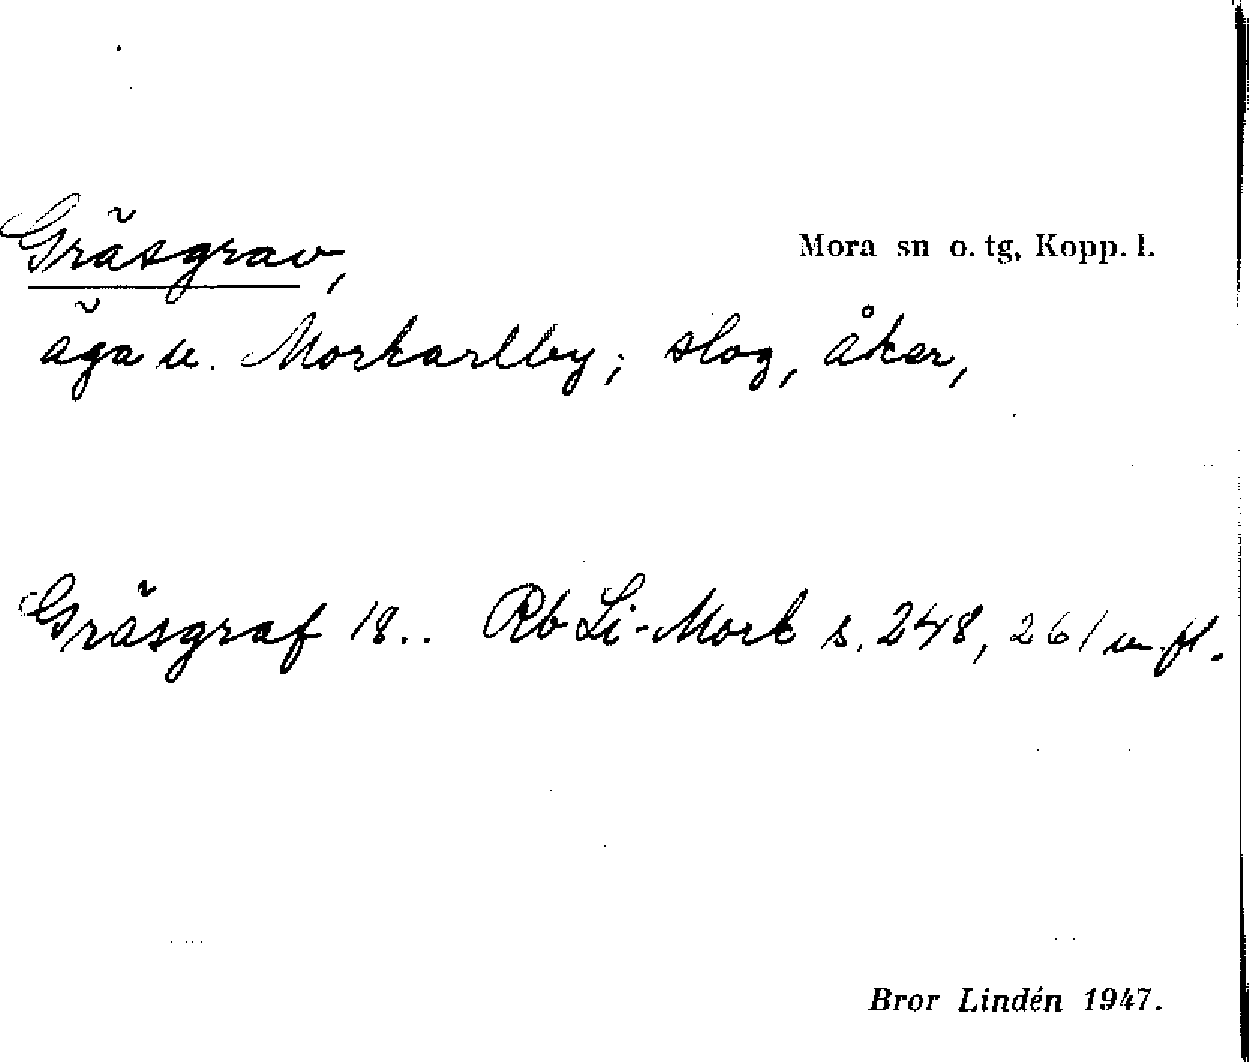 Gräsgrav,
Mora sn o. tg, Kopp. l.
äga u. Morkarlby; slog, åker,
Gräsgraf 18.. Rb Li-Mork s. 248, 261 m. fl.
Bror Lindén 1947.